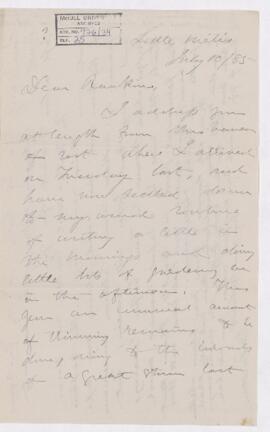 McGILL UNIVERSITY
ARCHIVES
ACC. NO.
REF. 25
?
Little Metis
July 10/85
Dear Rankine,
I address you
at length from this haven
of rest where I arrived
on Tuesday last, and
have now settled down
to my usual routine
of writing a little in
the mornings and doing
little bits of gardening &c
in the afternoon. This
year an unusual amount
of trimming remains to be
done, owing to the
of a great storm last